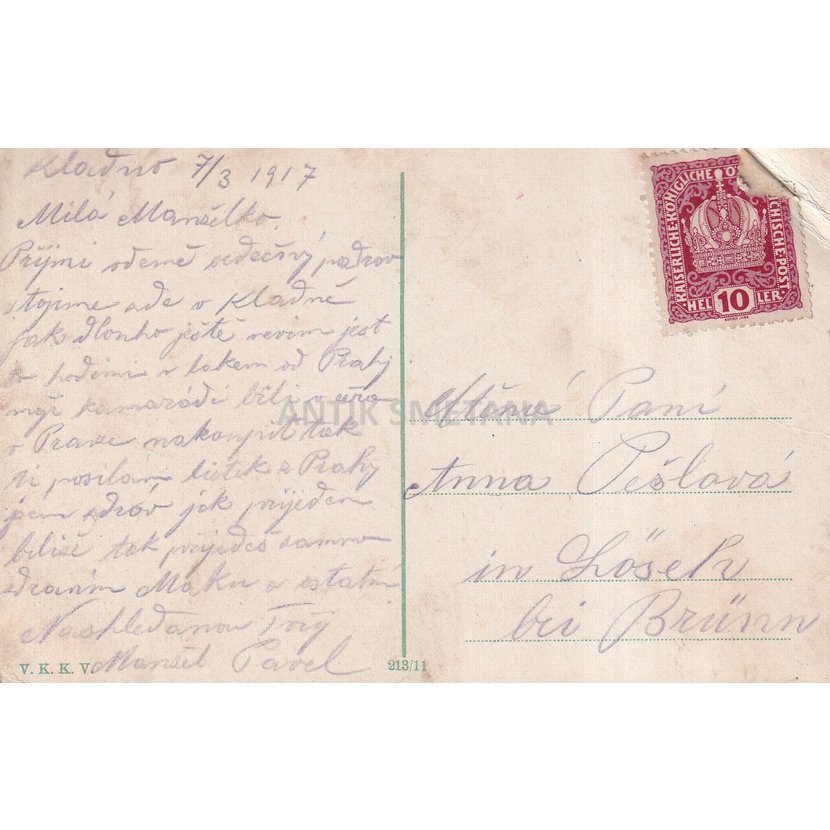 Kladno 7/3 1917
Milá Manželko.
Přijmi odemě srdečný pozdrav
stojime zde v Kladně
jak dlouho ještě nevim jest
to hodinu v lakem od Prahy
moji kamarádi bili včera
v Praze nakoupit tak
ti posilám listek z Prahy
jsem zdráv jak přijedem
bliže tak přijedeš samnou
zdravim Matku a ostatní
Nashledanou Tvůj
Manžel Pavel
V. K. K. V.
213/11
KAISERLICHE KÖNIGLICHE Ö
ICHISCHE POST
HEL 10 LER
ANTIK SMETANA
Paní
Anna Pešlová
in Lösch
bei Brünn